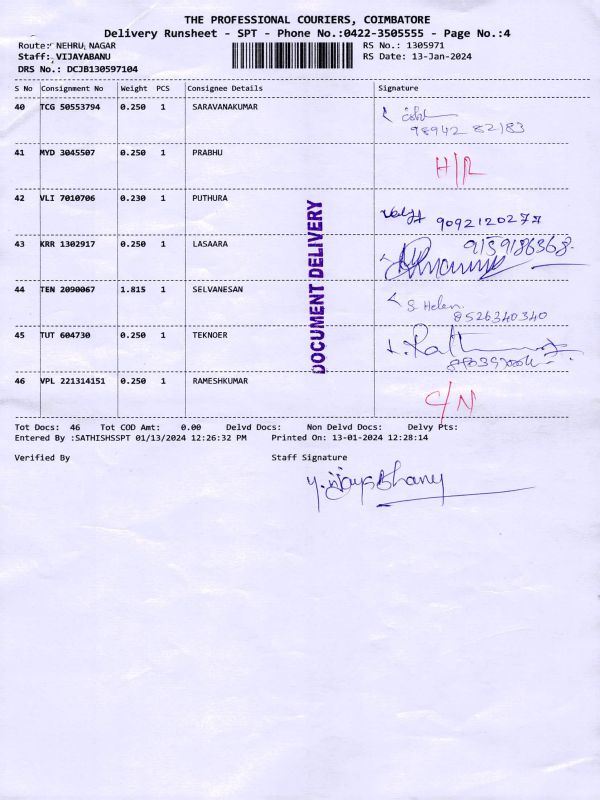 THE PROFESSIONAL COURIERS, COIMBATORE
Delivery Runsheet - SPT - Phone No.:0422-3505555 - Page No.:4
Route: NEHRU NAGAR RS No.: 1305971
Staff: VIJAYABANU RS Date: 13-Jan-2024
DRS No.: DCJB130597104
S No Consignment No Weight PCS Consignee Details Signature
40 TCG 50553794 0.250 1 SARAVANAKUMAR
98942 82183
41 MYD 3045507 0.250 1 PRABHU H/L
42 VLI 7010706 0.230 1 PUTHURA
9092120277
43 KRR 1302917 0.250 1 LASAARA
9159186368
44 TEN 2090067 1.815 1 SELVANESAN S. Helen
8526340340
45 TUT 604730 0.250 1 TEKNOER
46 VPL 221314151 0.250 1 RAMESHKUMAR C/N
DOCUMENT DELIVERY
Tot Docs: 46 Tot COD Amt: 0.00 Delvd Docs: Non Delvd Docs: Delvy Pts:
Entered By :SATHISHSSPT 01/13/2024 12:26:32 PM Printed On: 13-01-2024 12:28:14
Verified By Staff Signature